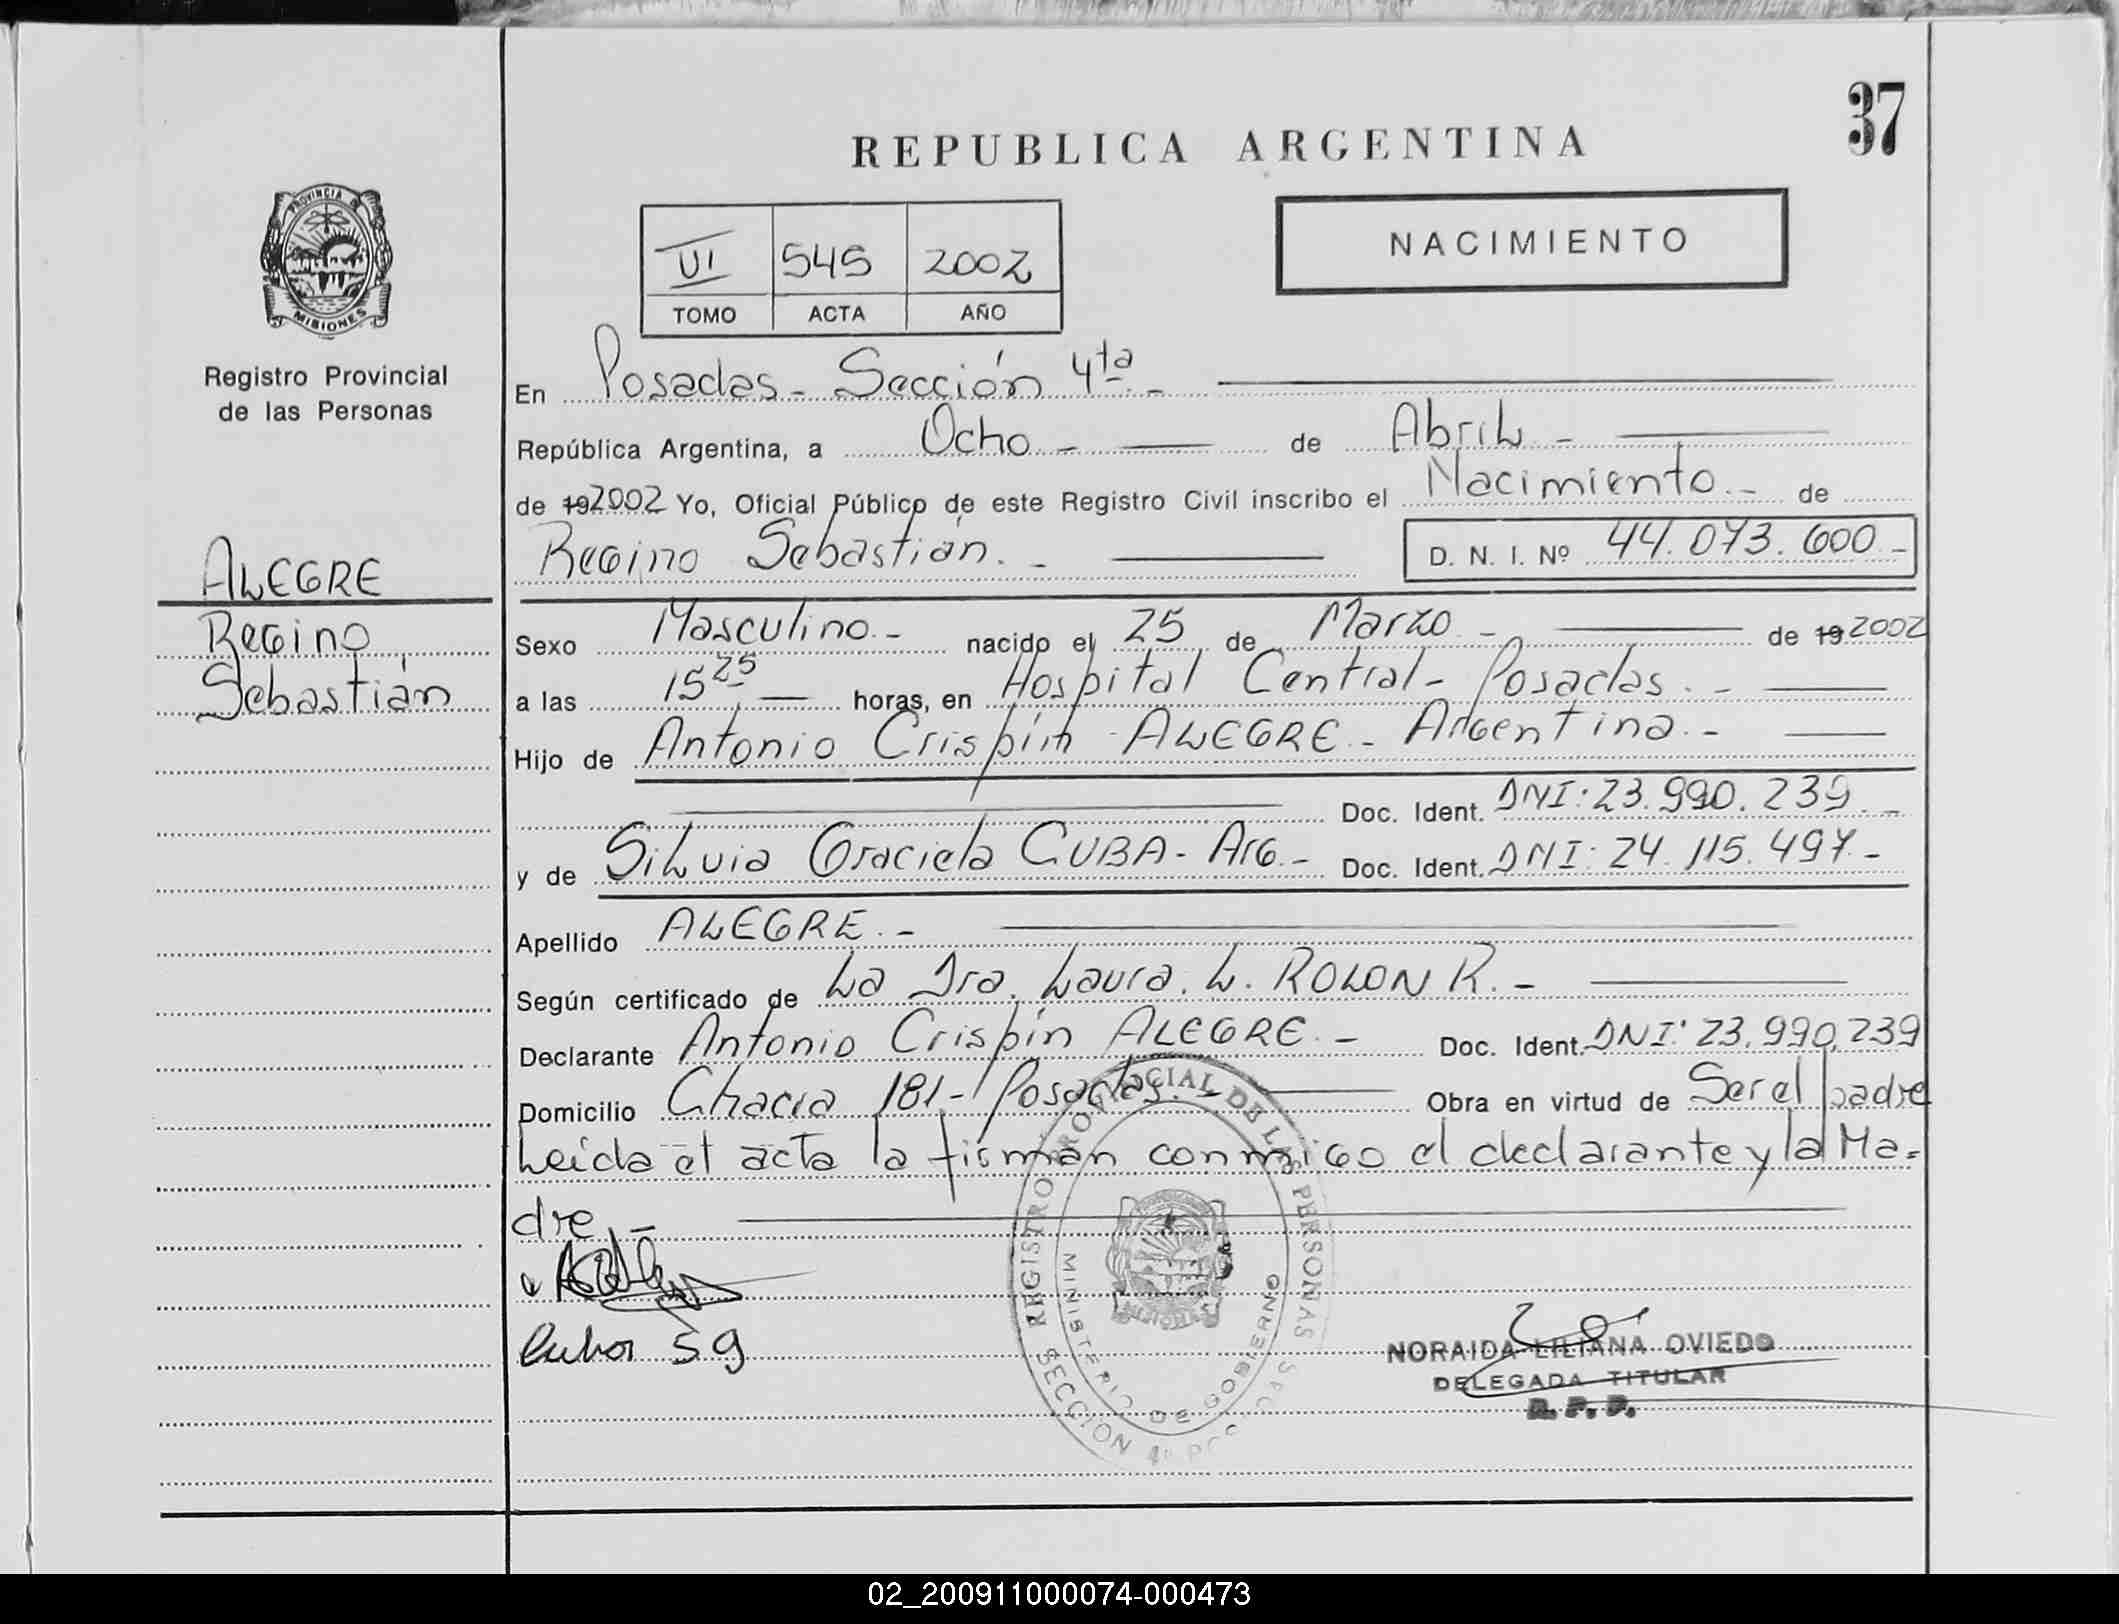 37
REPUBLICA ARGENTINA
PROVINCIA DE
MISIONES
VI 545 2002
TOMO ACTA AÑO
NACIMIENTO
Registro Provincial
de las Personas
ALEGRE
Regino
Sebastián
En Posadas - Sección 4ta -
República Argentina, a Ocho - de Abril -
de 19 2002 Yo, Oficial Público de este Registro Civil inscribo el Nacimiento - de
Regino Sebastián. - D. N. I. Nº 44.073.600 -
Sexo Masculino - nacido el 25 de Marzo - de 19 2002
a las 15 25 horas, en Hospital Central - Posadas. -
Hijo de Antonio Crispín ALEGRE - Argentina. -
Doc. Ident. DNI: 23.990.239. -
y de Silvia Graciela CUBA - Arg. - Doc. Ident. DNI: 24.115.497 -
Apellido ALEGRE. -
Según certificado de La Dra. Laura. L. ROLON R. -
Declarante Antonio Crispín ALEGRE. - Doc. Ident. DNI: 23.990.239
Domicilio Chacra 181 - Posadas. Obra en virtud de Ser el padre
Leída el acta la firman conmigo el declarante y la Ma=
dre. -
REGISTRO PROVINCIAL DE LAS PERSONAS
MINISTERIO DE GOBIERNO
SECCION 4ª
S g
NORAIDA LILIANA OVIEDO
DELEGADA TITULAR
R. P. P.
02_200911000074-000473